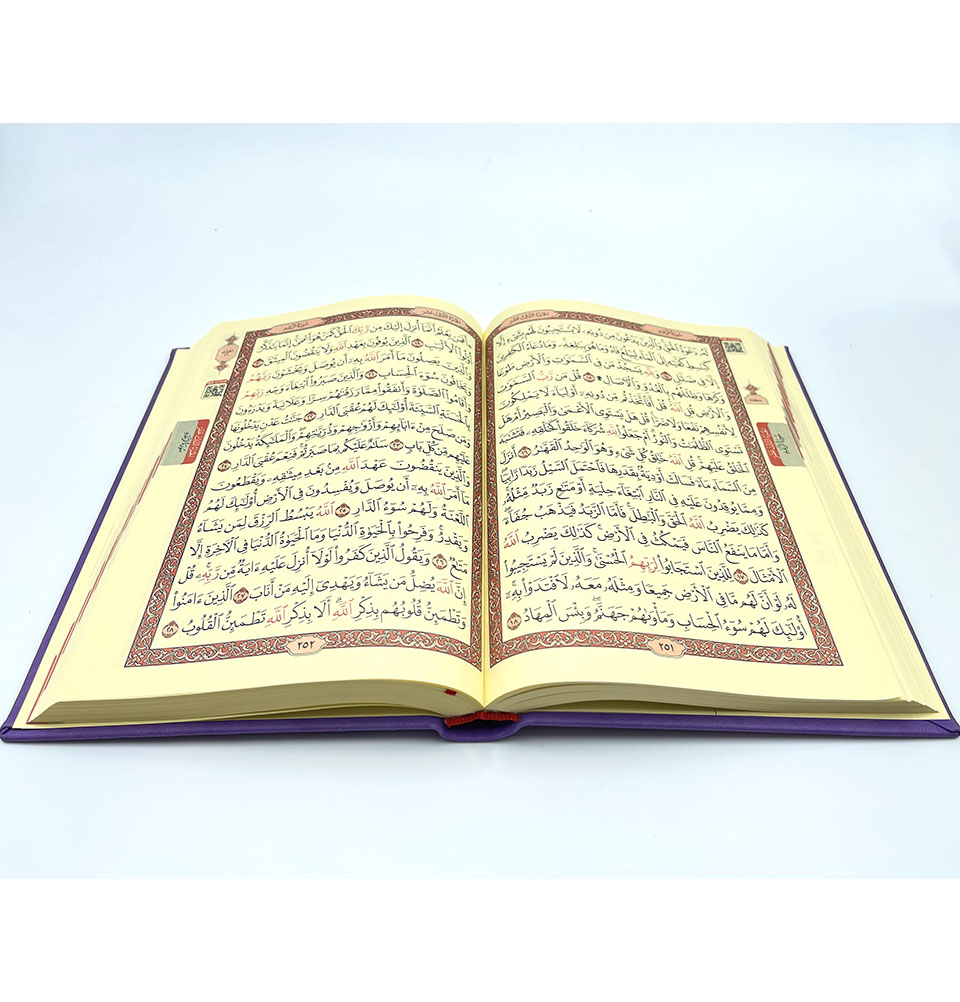 الجزء الثالث عشر
سورة الرعد
لَهُۥ دَعْوَةُ ٱلْحَقِّ وَٱلَّذِينَ يَدْعُونَ مِن دُونِهِۦ لَا يَسْتَجِيبُونَ لَهُم بِشَىْءٍ إِلَّا
كَبَٰسِطِ كَفَّيْهِ إِلَى ٱلْمَآءِ لِيَبْلُغَ فَاهُ وَمَا هُوَ بِبَٰلِغِهِۦ ۚ وَمَا دُعَآءُ ٱلْكَٰفِرِينَ
إِلَّا فِى ضَلَٰلٍ ١٤ وَلِلَّهِ يَسْجُدُ مَن فِى ٱلسَّمَٰوَٰتِ وَٱلْأَرْضِ طَوْعًا
وَكَرْهًا وَظِلَٰلُهُم بِٱلْغُدُوِّ وَٱلْءَاصَالِ ۩ ١٥ قُلْ مَن رَّبُّ ٱلسَّمَٰوَٰتِ
وَٱلْأَرْضِ قُلِ ٱللَّهُ ۚ قُلْ أَفَٱتَّخَذْتُم مِّن دُونِهِۦٓ أَوْلِيَآءَ لَا يَمْلِكُونَ
لِأَنفُسِهِمْ نَفْعًا وَلَا ضَرًّا ۚ قُلْ هَلْ يَسْتَوِى ٱلْأَعْمَىٰ وَٱلْبَصِيرُ أَمْ هَلْ
تَسْتَوِى ٱلظُّلُمَٰتُ وَٱلنُّورُ ۗ أَمْ جَعَلُوا۟ لِلَّهِ شُرَكَآءَ خَلَقُوا۟ كَخَلْقِهِۦ فَتَشَٰبَهَ
ٱلْخَلْقُ عَلَيْهِمْ ۚ قُلِ ٱللَّهُ خَٰلِقُ كُلِّ شَىْءٍ وَهُوَ ٱلْوَٰحِدُ ٱلْقَهَّٰرُ ١٦ أَنزَلَ
مِنَ ٱلسَّمَآءِ مَآءً فَسَالَتْ أَوْدِيَةٌۢ بِقَدَرِهَا فَٱحْتَمَلَ ٱلسَّيْلُ زَبَدًا رَّابِيًا ۚ
وَمِمَّا يُوقِدُونَ عَلَيْهِ فِى ٱلنَّارِ ٱبْتِغَآءَ حِلْيَةٍ أَوْ مَتَٰعٍ زَبَدٌ مِّثْلُهُۥ ۚ
كَذَٰلِكَ يَضْرِبُ ٱللَّهُ ٱلْحَقَّ وَٱلْبَٰطِلَ ۚ فَأَمَّا ٱلزَّبَدُ فَيَذْهَبُ جُفَآءً ۖ
وَأَمَّا مَا يَنفَعُ ٱلنَّاسَ فَيَمْكُثُ فِى ٱلْأَرْضِ ۚ كَذَٰلِكَ يَضْرِبُ ٱللَّهُ
ٱلْأَمْثَالَ ١٧ لِلَّذِينَ ٱسْتَجَابُوا۟ لِرَبِّهِمُ ٱلْحُسْنَىٰ ۚ وَٱلَّذِينَ لَمْ يَسْتَجِيبُوا۟
لَهُۥ لَوْ أَنَّ لَهُم مَّا فِى ٱلْأَرْضِ جَمِيعًا وَمِثْلَهُۥ مَعَهُۥ لَٱفْتَدَوْا۟ بِهِۦٓ ۚ
أُو۟لَٰٓئِكَ لَهُمْ سُوٓءُ ٱلْحِسَابِ وَمَأْوَىٰهُمْ جَهَنَّمُ ۖ وَبِئْسَ ٱلْمِهَادُ ١٨
٢٥١
الجزء الثالث عشر
سورة الرعد
أَفَمَن يَعْلَمُ أَنَّمَآ أُنزِلَ إِلَيْكَ مِن رَّبِّكَ ٱلْحَقُّ كَمَنْ هُوَ أَعْمَىٰٓ ۚ إِنَّمَا يَتَذَكَّرُ
أُو۟لُوا۟ ٱلْأَلْبَٰبِ ١٩ ٱلَّذِينَ يُوفُونَ بِعَهْدِ ٱللَّهِ وَلَا يَنقُضُونَ ٱلْمِيثَٰقَ ٢٠
وَٱلَّذِينَ يَصِلُونَ مَآ أَمَرَ ٱللَّهُ بِهِۦٓ أَن يُوصَلَ وَيَخْشَوْنَ رَبَّهُمْ
وَيَخَافُونَ سُوٓءَ ٱلْحِسَابِ ٢١ وَٱلَّذِينَ صَبَرُوا۟ ٱبْتِغَآءَ وَجْهِ رَبِّهِمْ
وَأَقَامُوا۟ ٱلصَّلَوٰةَ وَأَنفَقُوا۟ مِمَّا رَزَقْنَٰهُمْ سِرًّا وَعَلَانِيَةً وَيَدْرَءُونَ
بِٱلْحَسَنَةِ ٱلسَّيِّئَةَ أُو۟لَٰٓئِكَ لَهُمْ عُقْبَى ٱلدَّارِ ٢٢ جَنَّٰتُ عَدْنٍ يَدْخُلُونَهَا
وَمَن صَلَحَ مِنْ ءَابَآئِهِمْ وَأَزْوَٰجِهِمْ وَذُرِّيَّٰتِهِمْ ۖ وَٱلْمَلَٰٓئِكَةُ يَدْخُلُونَ
عَلَيْهِم مِّن كُلِّ بَابٍ ٢٣ سَلَٰمٌ عَلَيْكُم بِمَا صَبَرْتُمْ ۚ فَنِعْمَ عُقْبَى ٱلدَّارِ ٢٤
وَٱلَّذِينَ يَنقُضُونَ عَهْدَ ٱللَّهِ مِنۢ بَعْدِ مِيثَٰقِهِۦ وَيَقْطَعُونَ
مَآ أَمَرَ ٱللَّهُ بِهِۦٓ أَن يُوصَلَ وَيُفْسِدُونَ فِى ٱلْأَرْضِ ۙ أُو۟لَٰٓئِكَ لَهُمُ
ٱللَّعْنَةُ وَلَهُمْ سُوٓءُ ٱلدَّارِ ٢٥ ٱللَّهُ يَبْسُطُ ٱلرِّزْقَ لِمَن يَشَآءُ
وَيَقْدِرُ ۚ وَفَرِحُوا۟ بِٱلْحَيَوٰةِ ٱلدُّنْيَا وَمَا ٱلْحَيَوٰةُ ٱلدُّنْيَا فِى ٱلْءَاخِرَةِ إِلَّا
مَتَٰعٌ ٢٦ وَيَقُولُ ٱلَّذِينَ كَفَرُوا۟ لَوْلَآ أُنزِلَ عَلَيْهِ ءَايَةٌ مِّن رَّبِّهِۦ ۗ قُلْ
إِنَّ ٱللَّهَ يُضِلُّ مَن يَشَآءُ وَيَهْدِىٓ إِلَيْهِ مَنْ أَنَابَ ٢٧ ٱلَّذِينَ ءَامَنُوا۟
وَتَطْمَئِنُّ قُلُوبُهُم بِذِكْرِ ٱللَّهِ ۗ أَلَا بِذِكْرِ ٱللَّهِ تَطْمَئِنُّ ٱلْقُلُوبُ ٢٨
٢٥٢